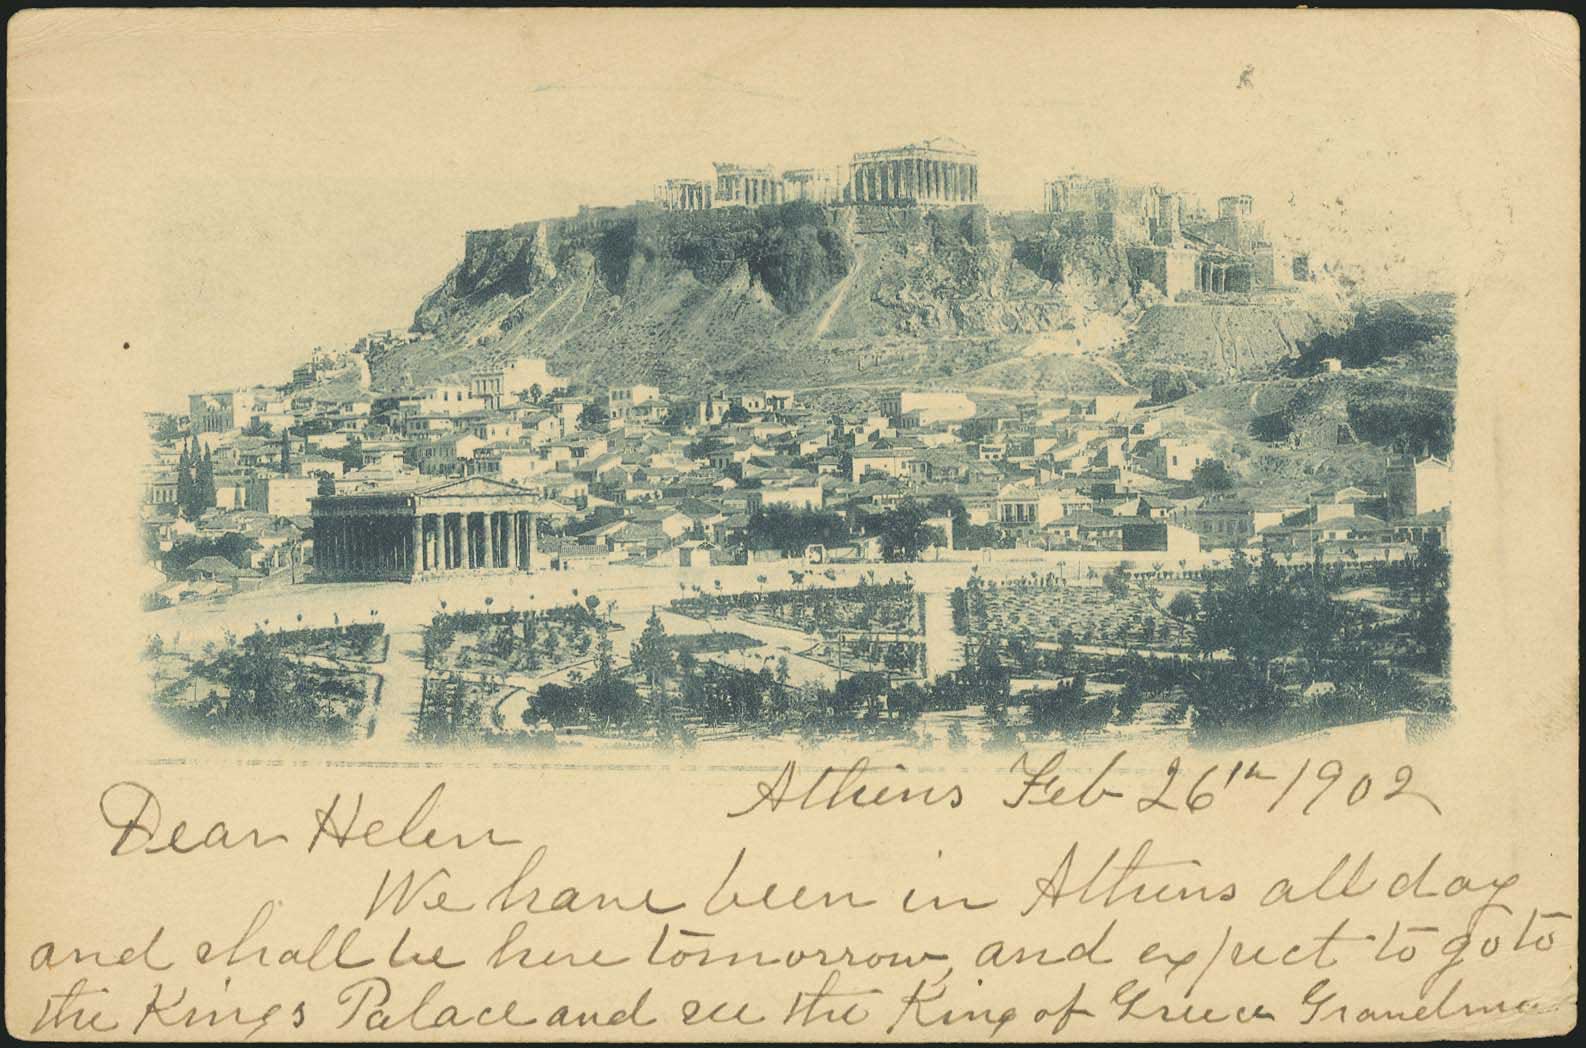 Athens Feb 26th 1902
Dear Helen
We have been in Athens all day
and shall be here tomorrow, and expect to go to
the Kings Palace and see the King of Greece Grandma